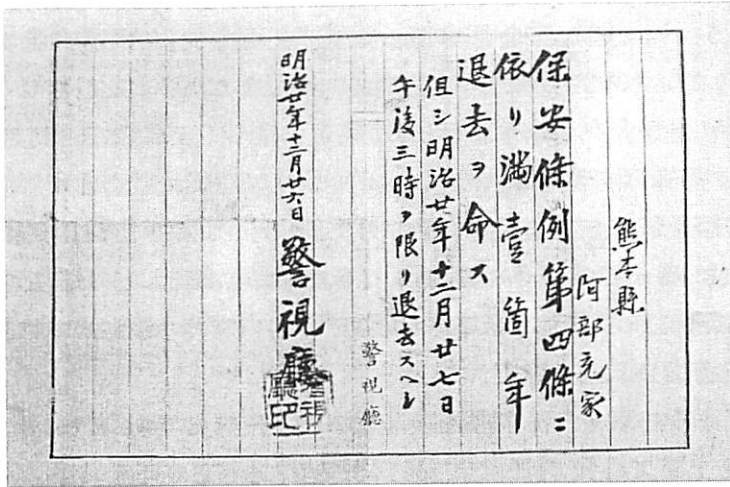 熊本縣
阿部充家
保安條例第四條ニ
依リ満壹箇年
退去ヲ命ス
但シ明治廿年十二月廿七日
午後三時ヲ限リ退去スヘシ
警視廳
明治廿年十二月廿六日 警視廳
警視廳印